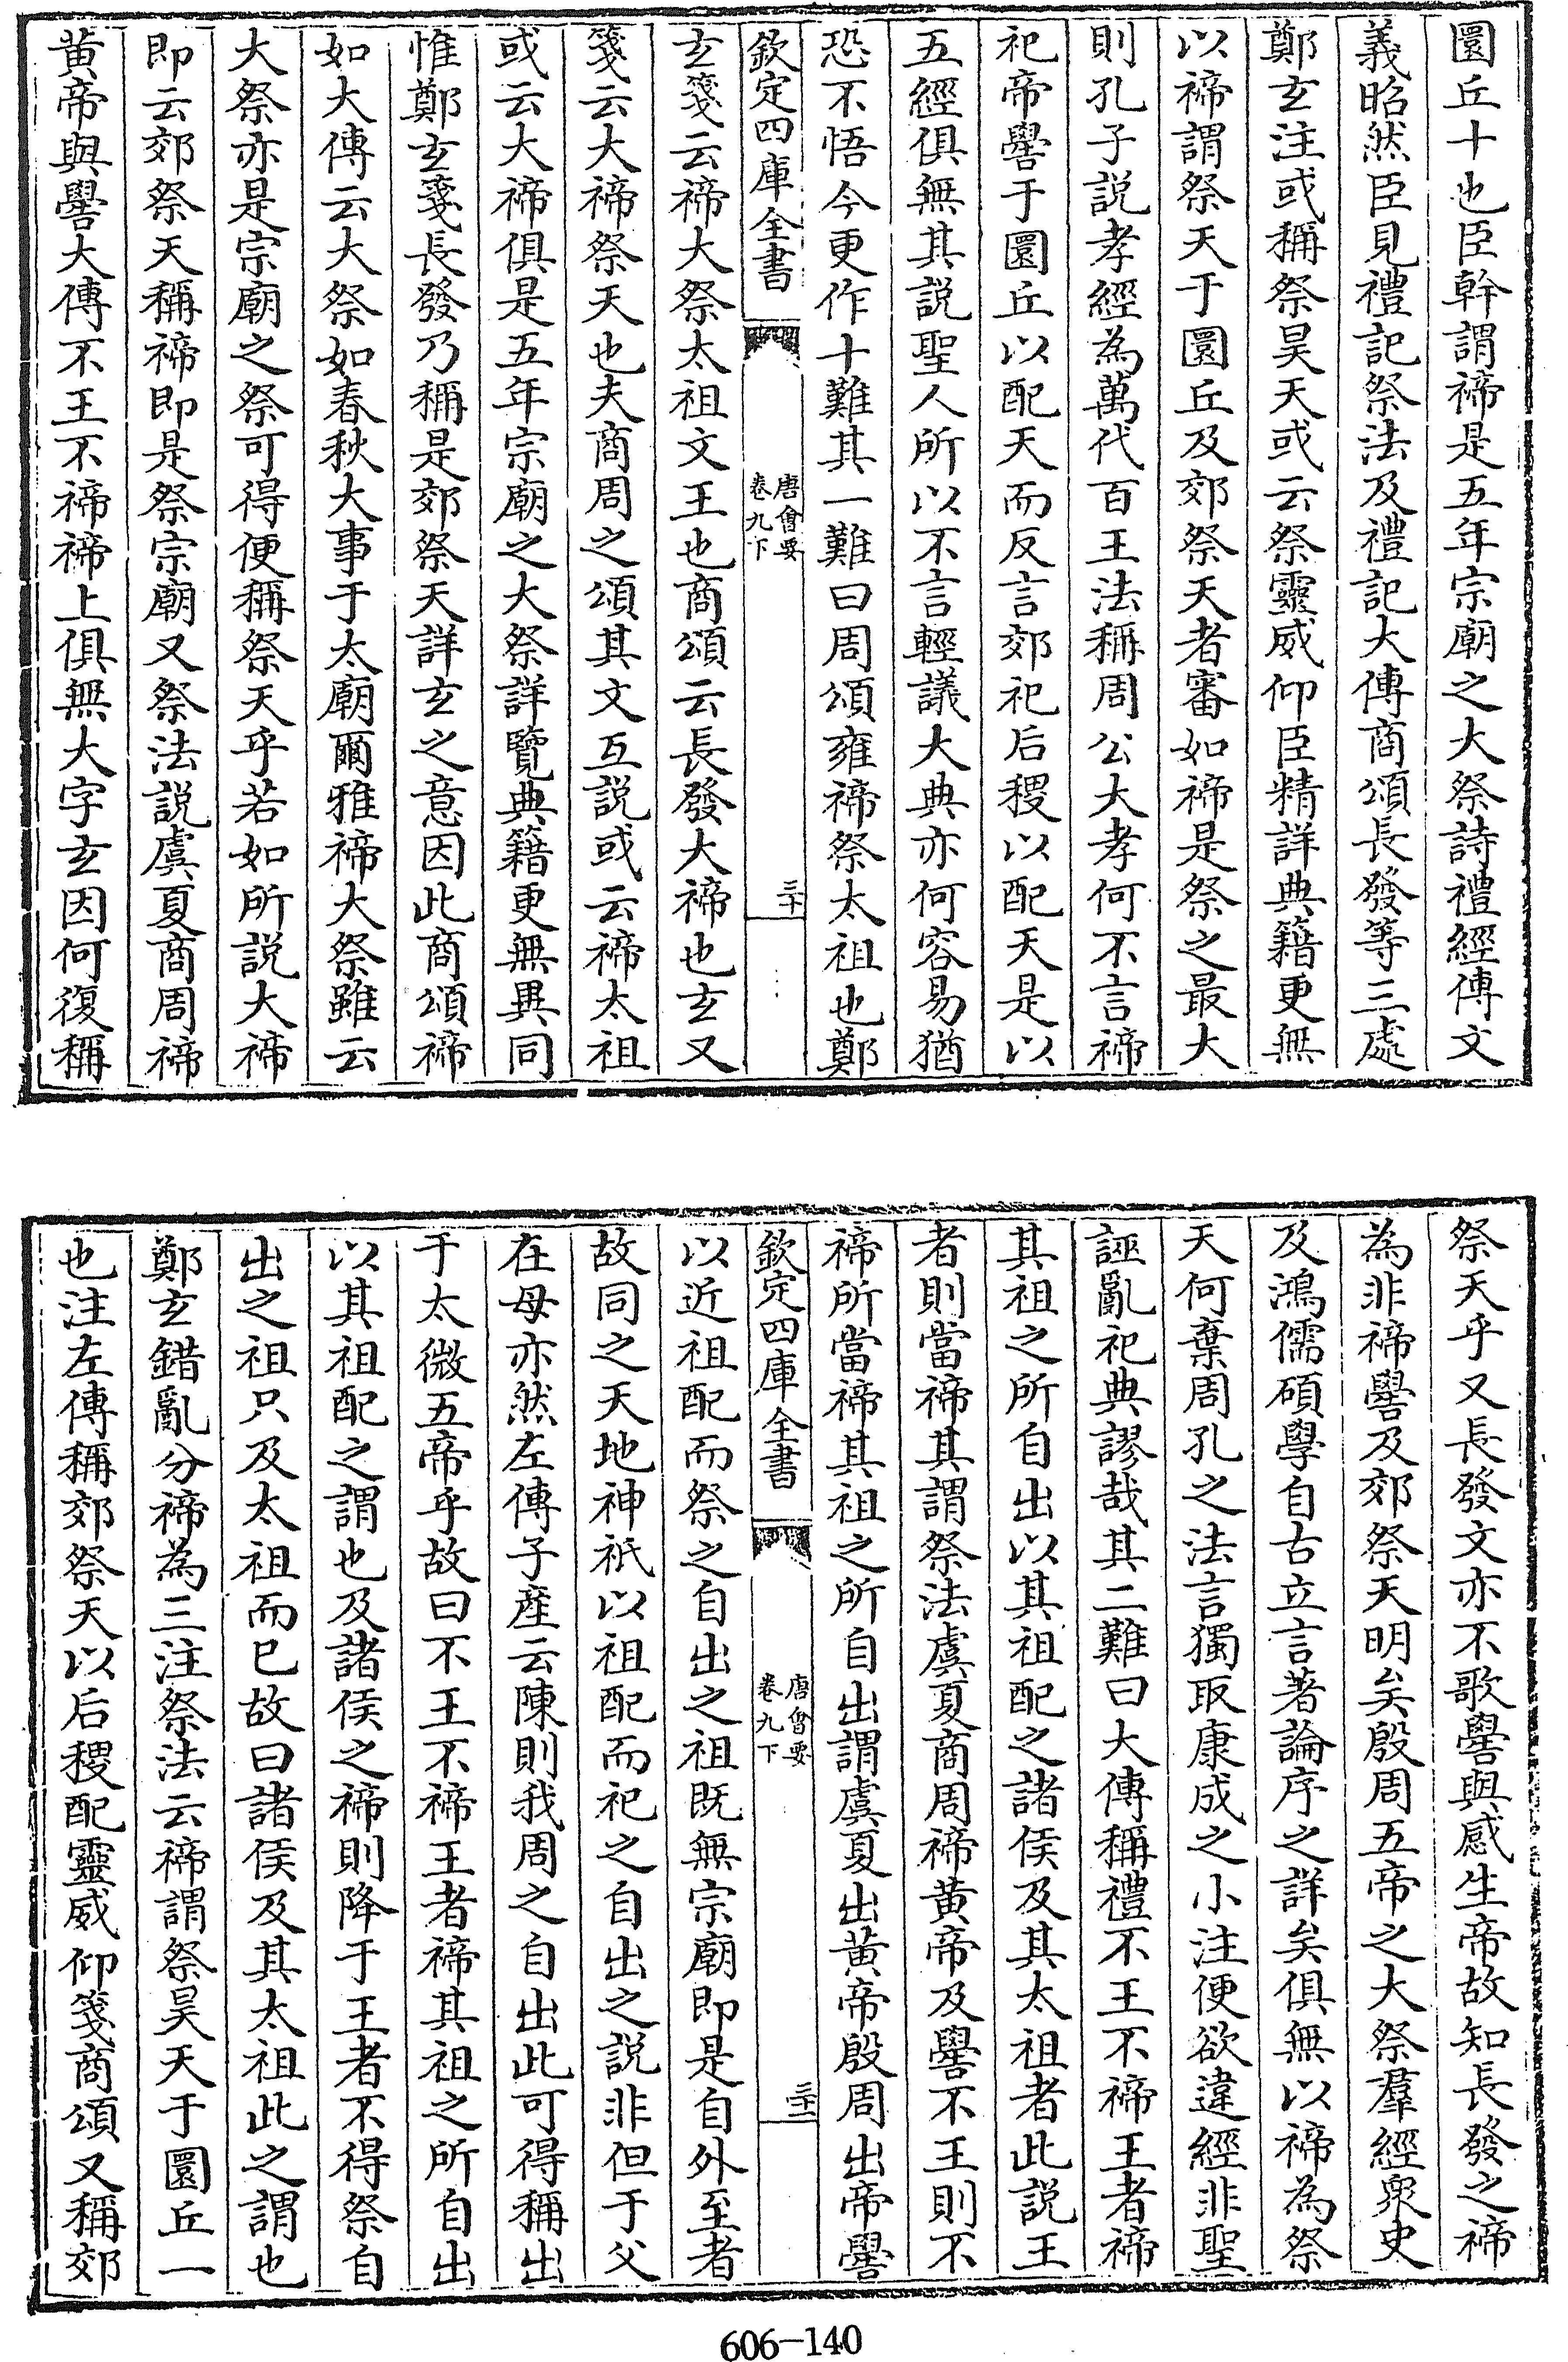 圜丘十也臣幹謂禘是五年宗廟之大祭詩禮經傳文
義昭然臣見禮記祭法及禮記大傳商頌長發等三處
鄭玄注或稱祭昊天或云祭靈威仰臣精詳典籍更無
以禘謂祭天于圜丘及郊祭天者審如禘是祭之最大
則孔子說孝經為萬代百王法稱周公大孝何不言禘
祀帝嚳于圜丘以配天而反言郊祀后稷以配天是以
五經俱無其說聖人所以不言輕議大典亦何容易猶
恐不悟今更作十難其一難曰周頌雍禘祭太祖也鄭
欽定四庫全書
唐會要
卷九下
三十
玄箋云禘大祭太祖文王也商頌云長發大禘也玄又
箋云大禘祭天也夫商周之頌其文互說或云禘太祖
或云大禘俱是五年宗廟之大祭詳覽典籍更無異同
惟鄭玄箋長發乃稱是郊祭天詳玄之意因此商頌禘
如大傳云大祭如春秋大事于太廟爾雅禘大祭雖云
大祭亦是宗廟之祭可得便稱祭天乎若如所說大禘
即云郊祭天稱禘即是祭宗廟又祭法說虞夏商周禘
黃帝與嚳大傳不王不禘禘上俱無大字玄因何復稱
祭天乎又長發文亦不歌嚳與感生帝故知長發之禘
為非禘嚳及郊祭天明矣殷周五帝之大祭羣經衆史
及鴻儒碩學自古立言著論序之詳矣俱無以禘為祭
天何棄周孔之法言獨取康成之小注便欲違經非聖
誣亂祀典謬哉其二難曰大傳稱禮不王不禘王者禘
其祖之所自出以其祖配之諸侯及其太祖者此說王
者則當禘其謂祭法虞夏商周禘黃帝及嚳不王則不
禘所當禘其祖之所自出謂虞夏出黃帝殷周出帝嚳
欽定四庫全書
唐會要
卷九下
三十一
以近祖配而祭之自出之祖既無宗廟即是自外至者
故同之天地神祇以祖配而祀之自出之說非但于父
在母亦然左傳子產云陳則我周之自出此可得稱出
于太微五帝乎故曰不王不禘王者禘其祖之所自出
以其祖配之謂也及諸侯之禘則降于王者不得祭自
出之祖只及太祖而已故曰諸侯及其太祖此之謂也
鄭玄錯亂分禘為三注祭法云禘謂祭昊天于圜丘一
也注左傳稱郊祭天以后稷配靈威仰箋商頌又稱郊
606-140